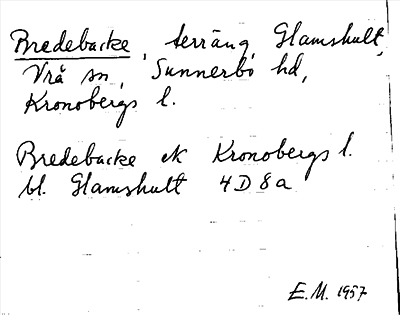 Bredebacke, terräng, Glamshult,
Vrå sn, Sunnerbo hd,
Kronobergs l.
Bredebacke ek Kronobergs l.
bl. Glamshult 4D8a
E.M. 1957